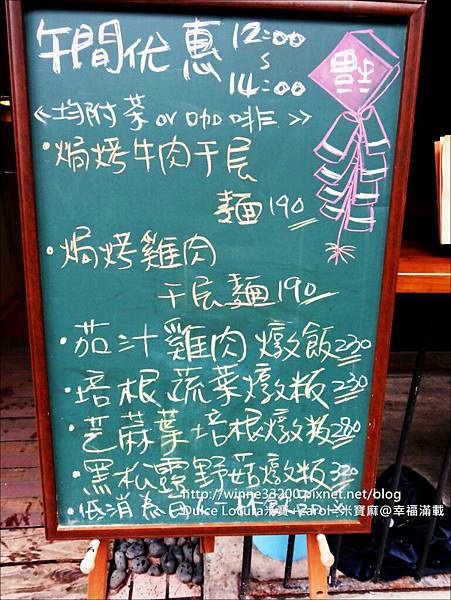 午間优惠 12:00
~
14:00
福
《均附茶 or 咖啡》
·焗烤牛肉千层
麵 190
·焗烤雞肉
千层麵 190
·茄汁雞肉燉飯 230
·培根蔬菜燉飯 230
·芝蔴葉培根燉飯 280
·黑松露野菇燉飯 320
http://winne33200.pixnet.net/blog
·低消為
Dulce Locura
米寶麻@幸福滿載